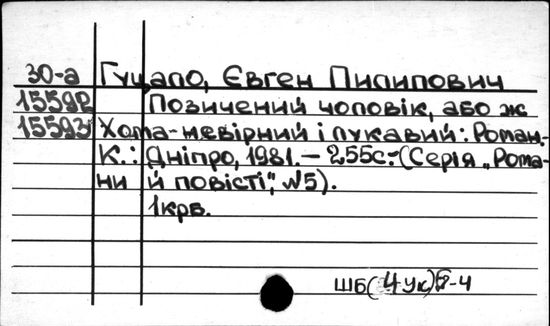 30-а Гуцало, Євген Пилипович
15592 Позичений чоловік, або ж
15593 Хома-невірний і лукавий: Роман.-
К.: Дніпро, 1981. – 255с.-(Серія „Рома-
ни й повісті", №5).
1крб.
ШБ(4Ук)